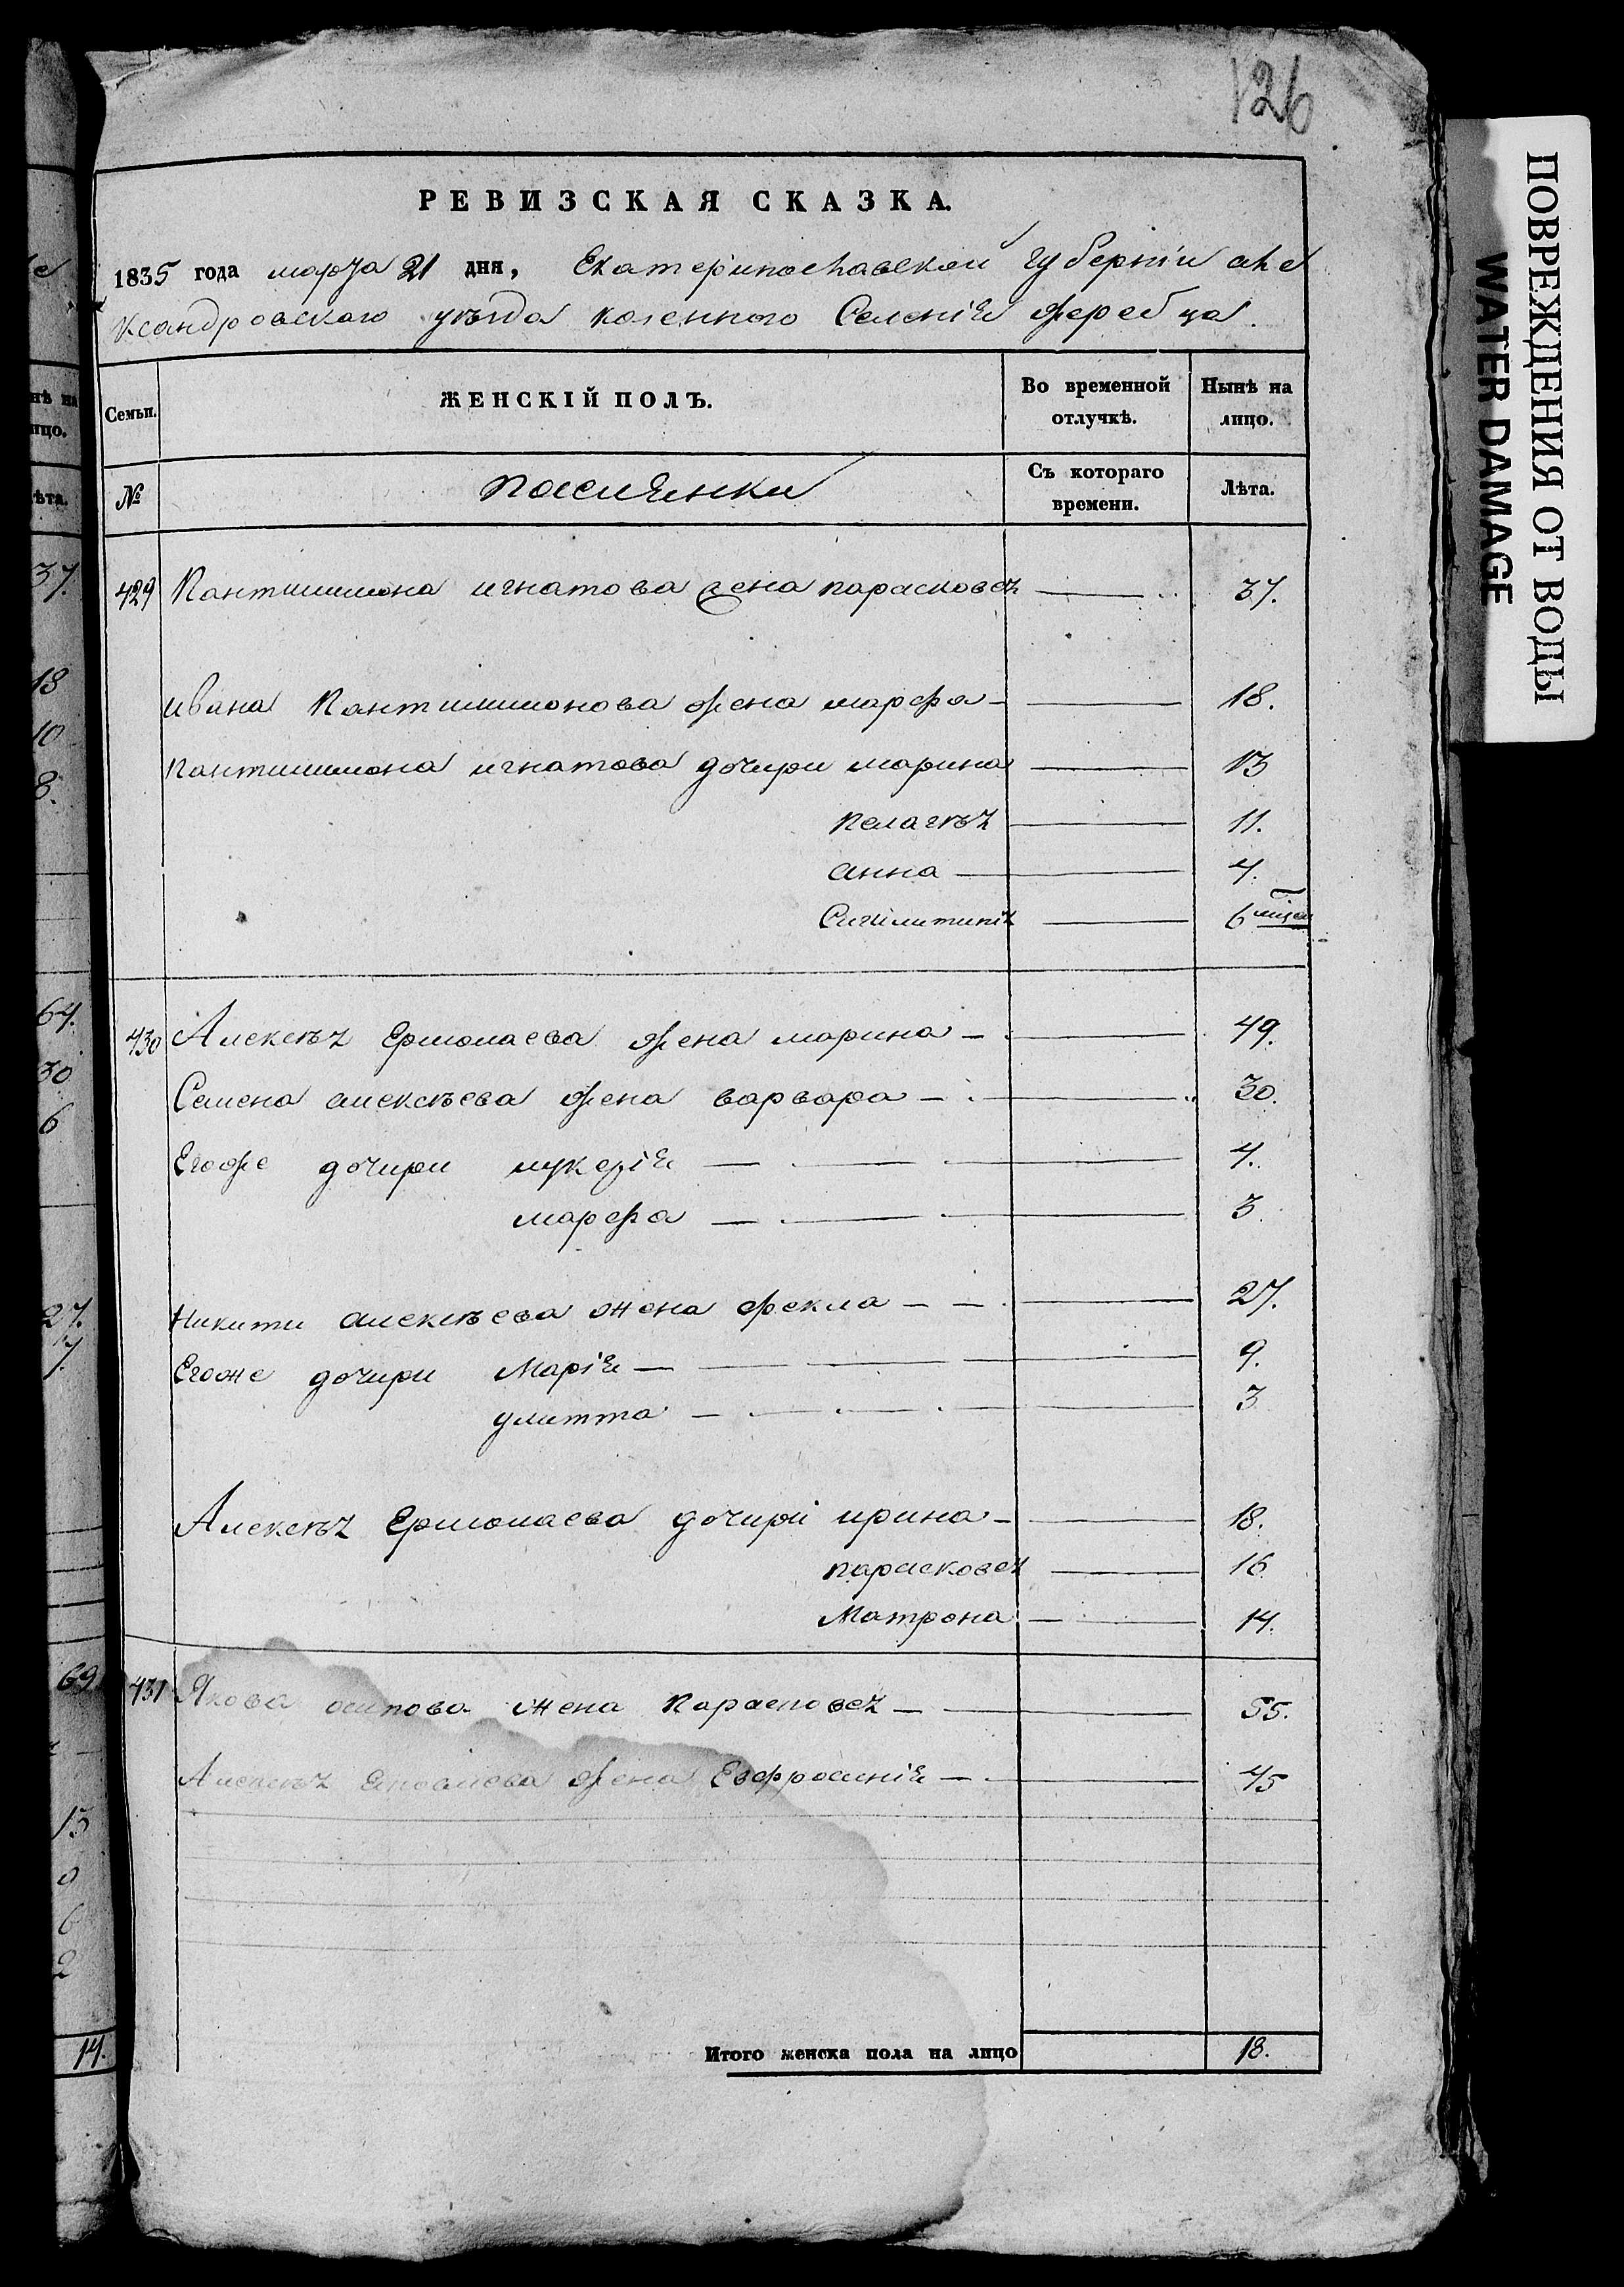 126
РЕВИЗСКАЯ СКАЗКА.
1835 года марта 21 дня, Екатеринославской губернiи але
ксандровского уезда казенного Селенiя жеребца.
Семьи. ЖЕНСКІЙ ПОЛЪ. Во временной отлучкѣ. Нынѣ на лицо.
№ Съ котораго времени. Лѣта.
429 Пантилимона игнатова жена парасковея 37.
ивана Пантилимонова жена марфа 18.
пантилимона игнатова дочири марина 13
пелагѣя 11.
анна 4.
6 мцеи
430 Алексѣя Ермолаева жена марина 49.
Семена алексѣева жена варвара 30.
Егоже дочири лукерiя 4.
марфа 3.
Никити алексѣева жена фекла 27.
Егоже дочири Марiя 9.
улитта 3
Алексѣя Ермолаева дочирi ирина 18.
парасковея 16
Матрона 14.
431 Якова осипова жена Парасковея 55.
Алексѣя жена Евфросинiя 45
Итого женска пола на лицо 18.
ПОВРЕЖДЕНИЯ ОТ ВОДЫ
WATER DAMAGE
нѣ на
ицо.
ѣта.
37.
18
10
8.
64.
30
6
27.
7.
69
15
0
6
2
14.